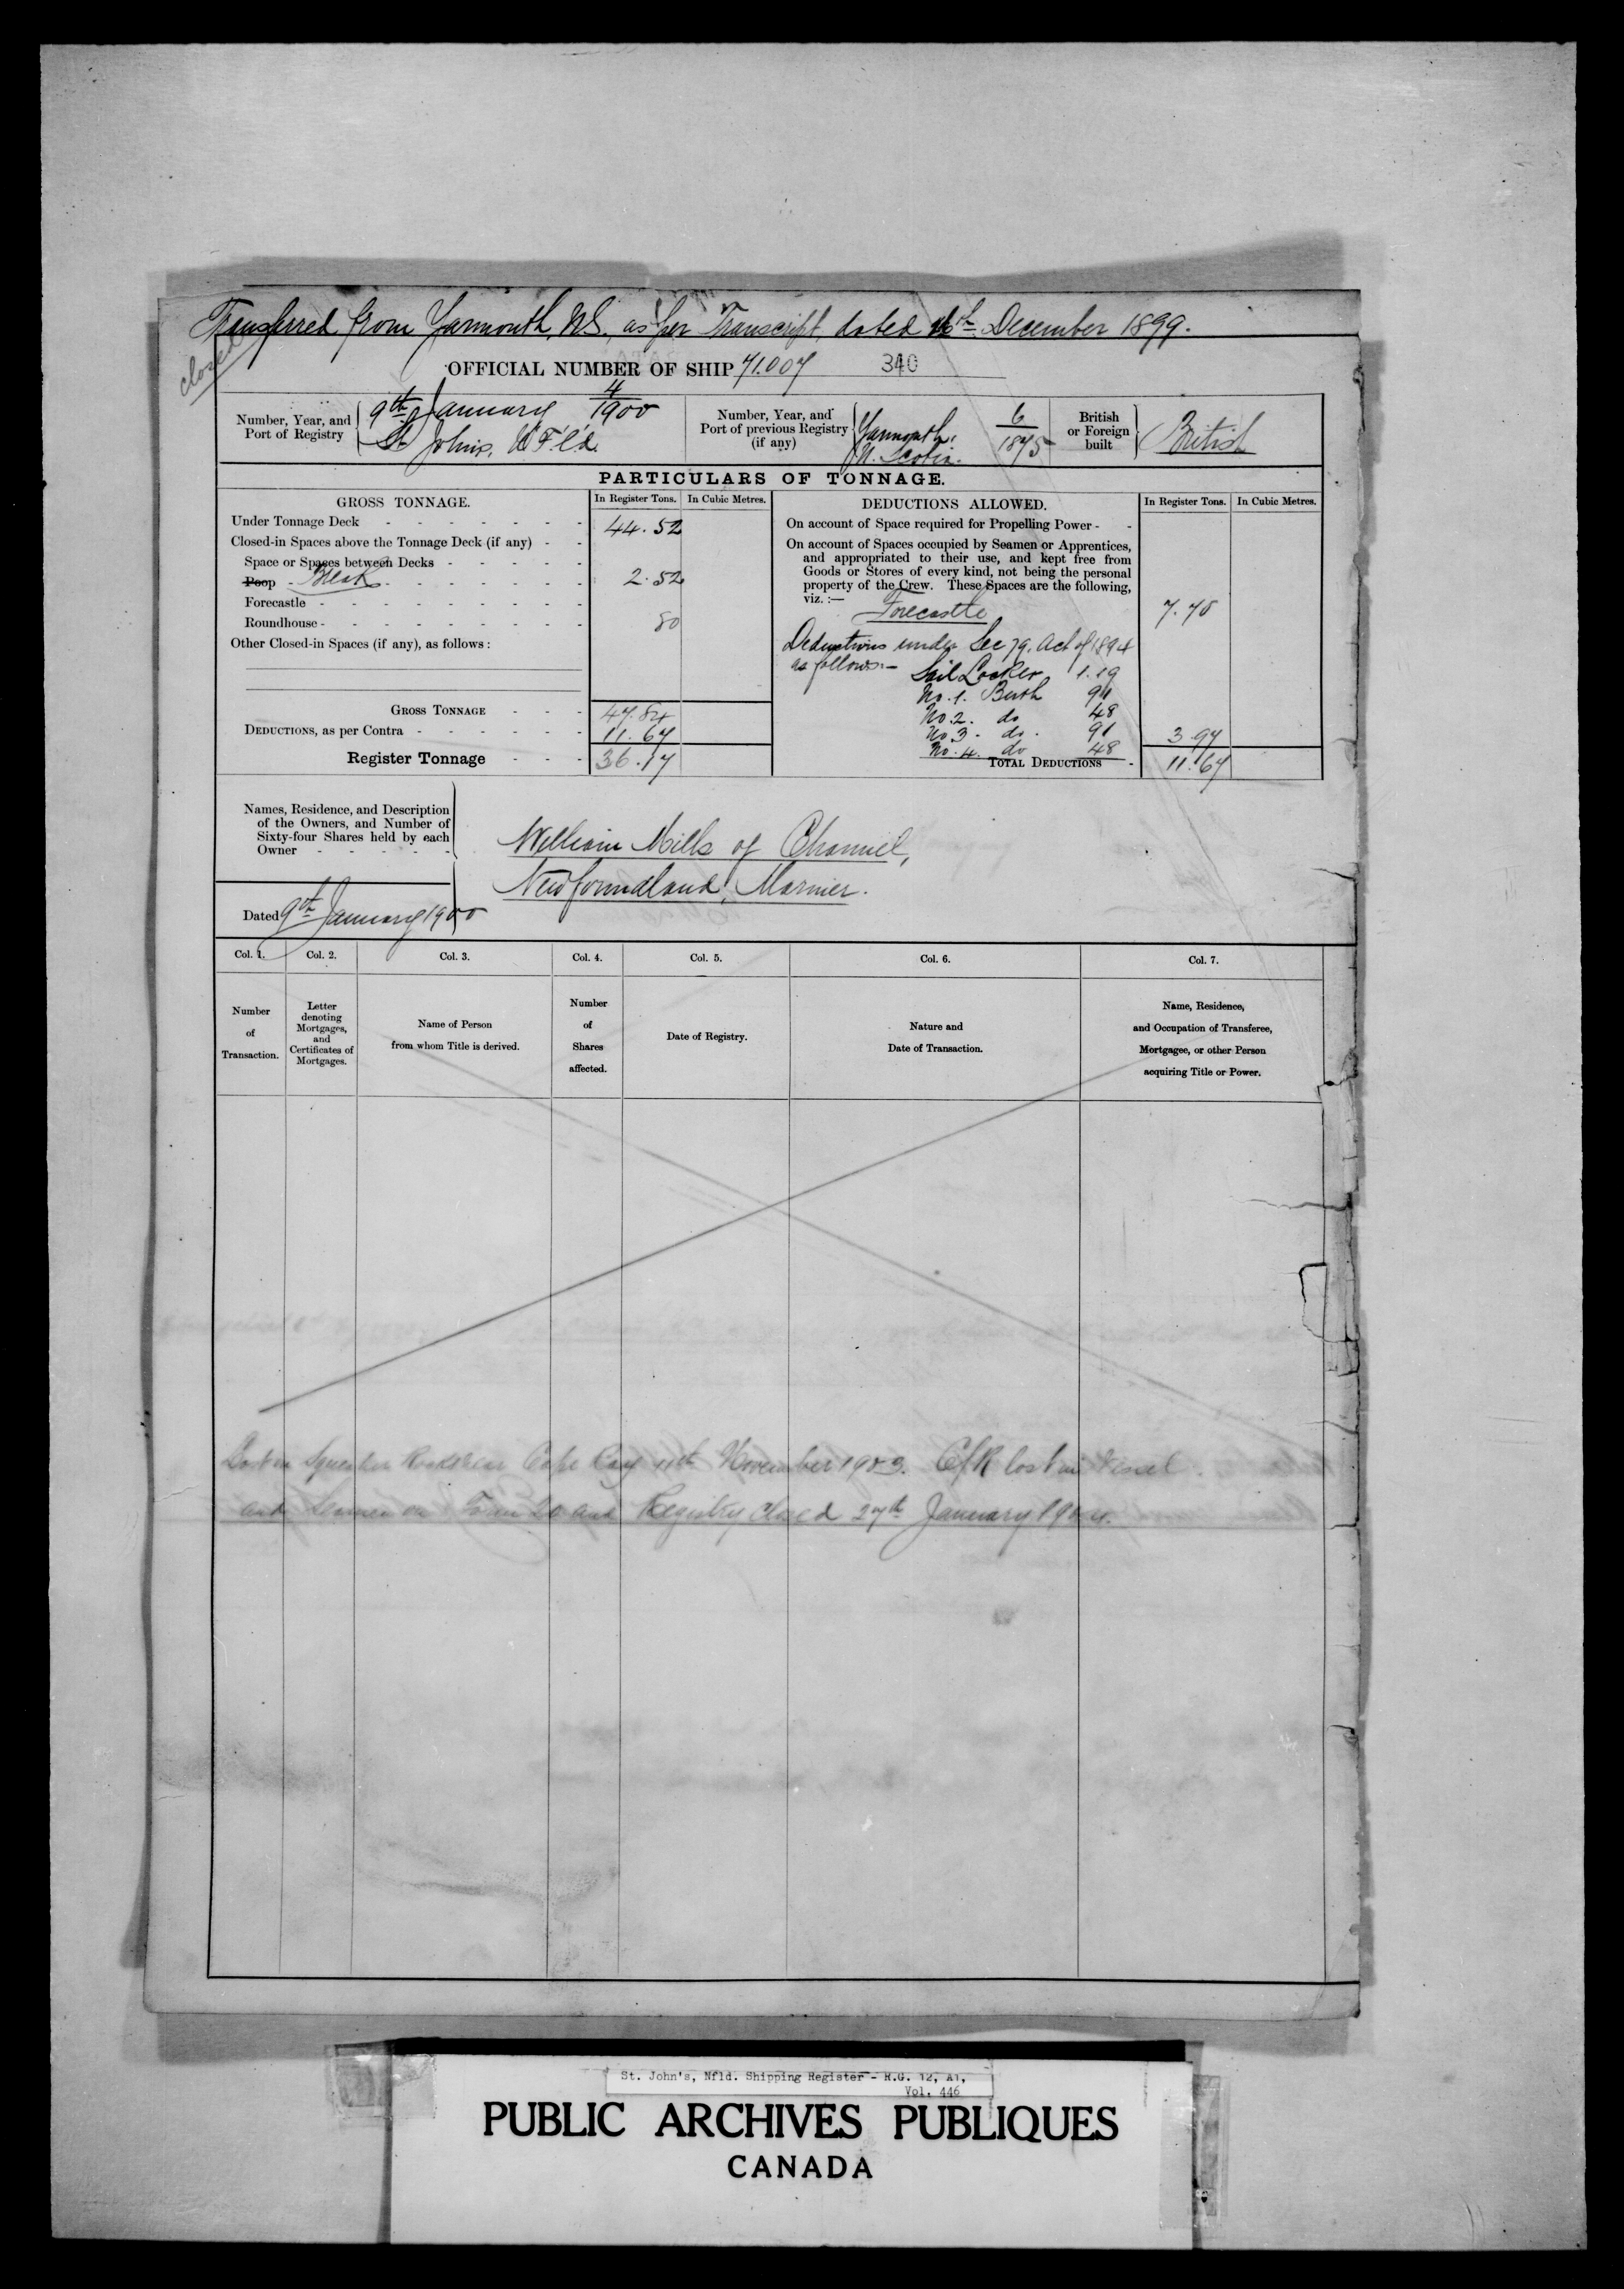 Transferred from Yarmouth, N.S., as per Transcript, dated 16th December 1899.
closed
OFFICIAL NUMBER OF SHIP 71.007 340
Number, Year, and
Port of Registry
9th January 4/1900
St Johns, N'F'l'd.
Number, Year, and
Port of previous Registry
(if any)
Yarmouth,
N. Scotia.
6/1875
British
or Foreign
built
British
PARTICULARS OF TONNAGE.
GROSS TONNAGE. In Register Tons. In Cubic Metres.
Under Tonnage Deck - - - - - - - 44.52
Closed-in Spaces above the Tonnage Deck (if any) - -
Space or Spaces between Decks - - - - -
Poop - Break - - - - - - 2.52
Forecastle - - - - - - - - -
Roundhouse - - - - - - - - - 80
Other Closed-in Spaces (if any), as follows :
GROSS TONNAGE - - - 47.84
DEDUCTIONS, as per Contra - - - - - - 11.67
Register Tonnage - - - 36.17
DEDUCTIONS ALLOWED. In Register Tons. In Cubic Metres.
On account of Space required for Propelling Power - -
On account of Spaces occupied by Seamen or Apprentices,
and appropriated to their use, and kept free from
Goods or Stores of every kind, not being the personal
property of the Crew. These Spaces are the following,
viz. :—
Forecastle 7.70
Deductions under Sec 79. Act of 1894
as follows:- Sail Locker 1.19
No. 1. Berth 91
No. 2. do 48
No 3. do. 91 3.97
No. 4. do 48
TOTAL DEDUCTIONS - 11.67
Names, Residence, and Description
of the Owners, and Number of
Sixty-four Shares held by each
Owner - - - - -
William Mills of Channel,
Newfoundland, Mariner.
Dated 9th January 1900
Col. 1. Col. 2. Col. 3. Col. 4. Col. 5. Col. 6. Col. 7.
Number
of
Transaction.
Letter
denoting
Mortgages,
and
Certificates of
Mortgages.
Name of Person
from whom Title is derived.
Number
of
Shares
affected.
Date of Registry.
Nature and
Date of Transaction.
Name, Residence,
and Occupation of Transferee,
Mortgagee, or other Person
acquiring Title or Power.
Lost on Rocks near Cape Ray 11th November 1903. C/R lost in Vessel.
and on Form 20 and Registry closed 27th January 1904.
St. John's, Nfld. Shipping Register - R.G. 12, A1,
Vol. 446
PUBLIC ARCHIVES PUBLIQUES
CANADA